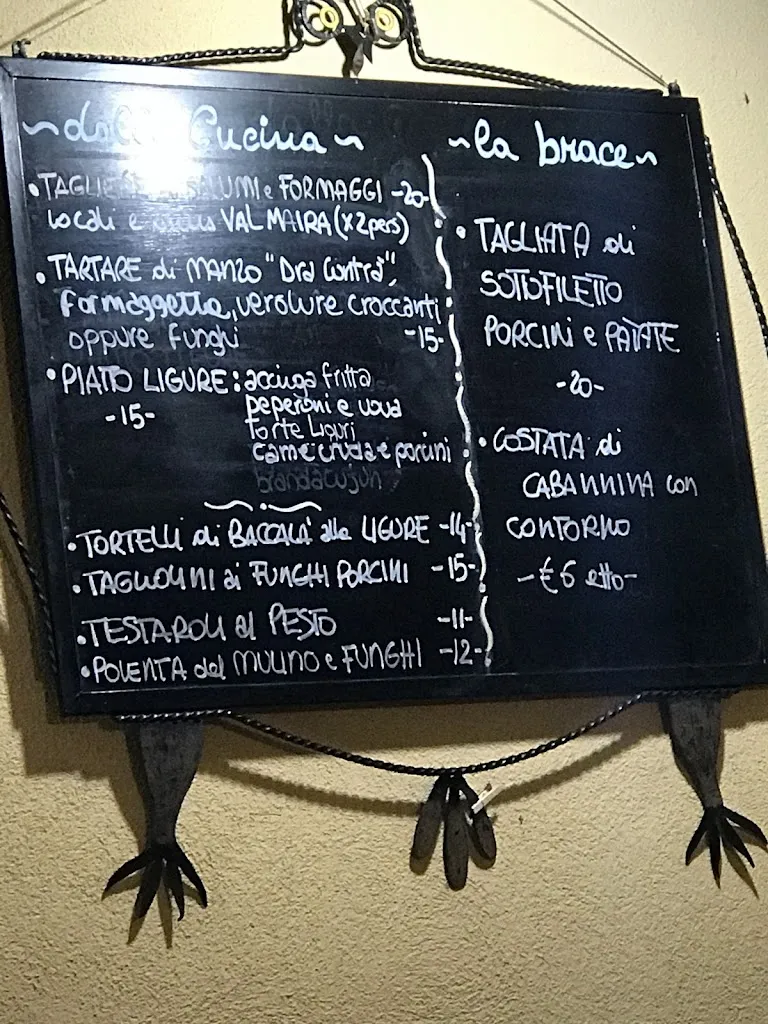 ~dalla Cucina~
•TAGLIERE SALUMI e FORMAGGI -20-
locali e VAL MAIRA (x2pers)
•TARTARE di MANZO "Dra Contra",
formaggetta, verdure croccanti
oppure funghi -15-
•PIATTO LIGURE: acciuga fritta
-15- peperoni e uova
torte liguri
carne cruda e porcini
brandacujun
•TORTELLI di BACCALA' alla LIGURE -14-
•TAGLIOLINI ai FUNGHI PORCINI -15-
•TESTAROLI al PESTO -11-
•POLENTA del MULINO e FUNGHI -12-
~la brace~
•TAGLIATA di
SOTTOFILETTO
PORCINI e PATATE
-20-
•COSTATA di
CABANNINA con
CONTORNO
-€6 etto-